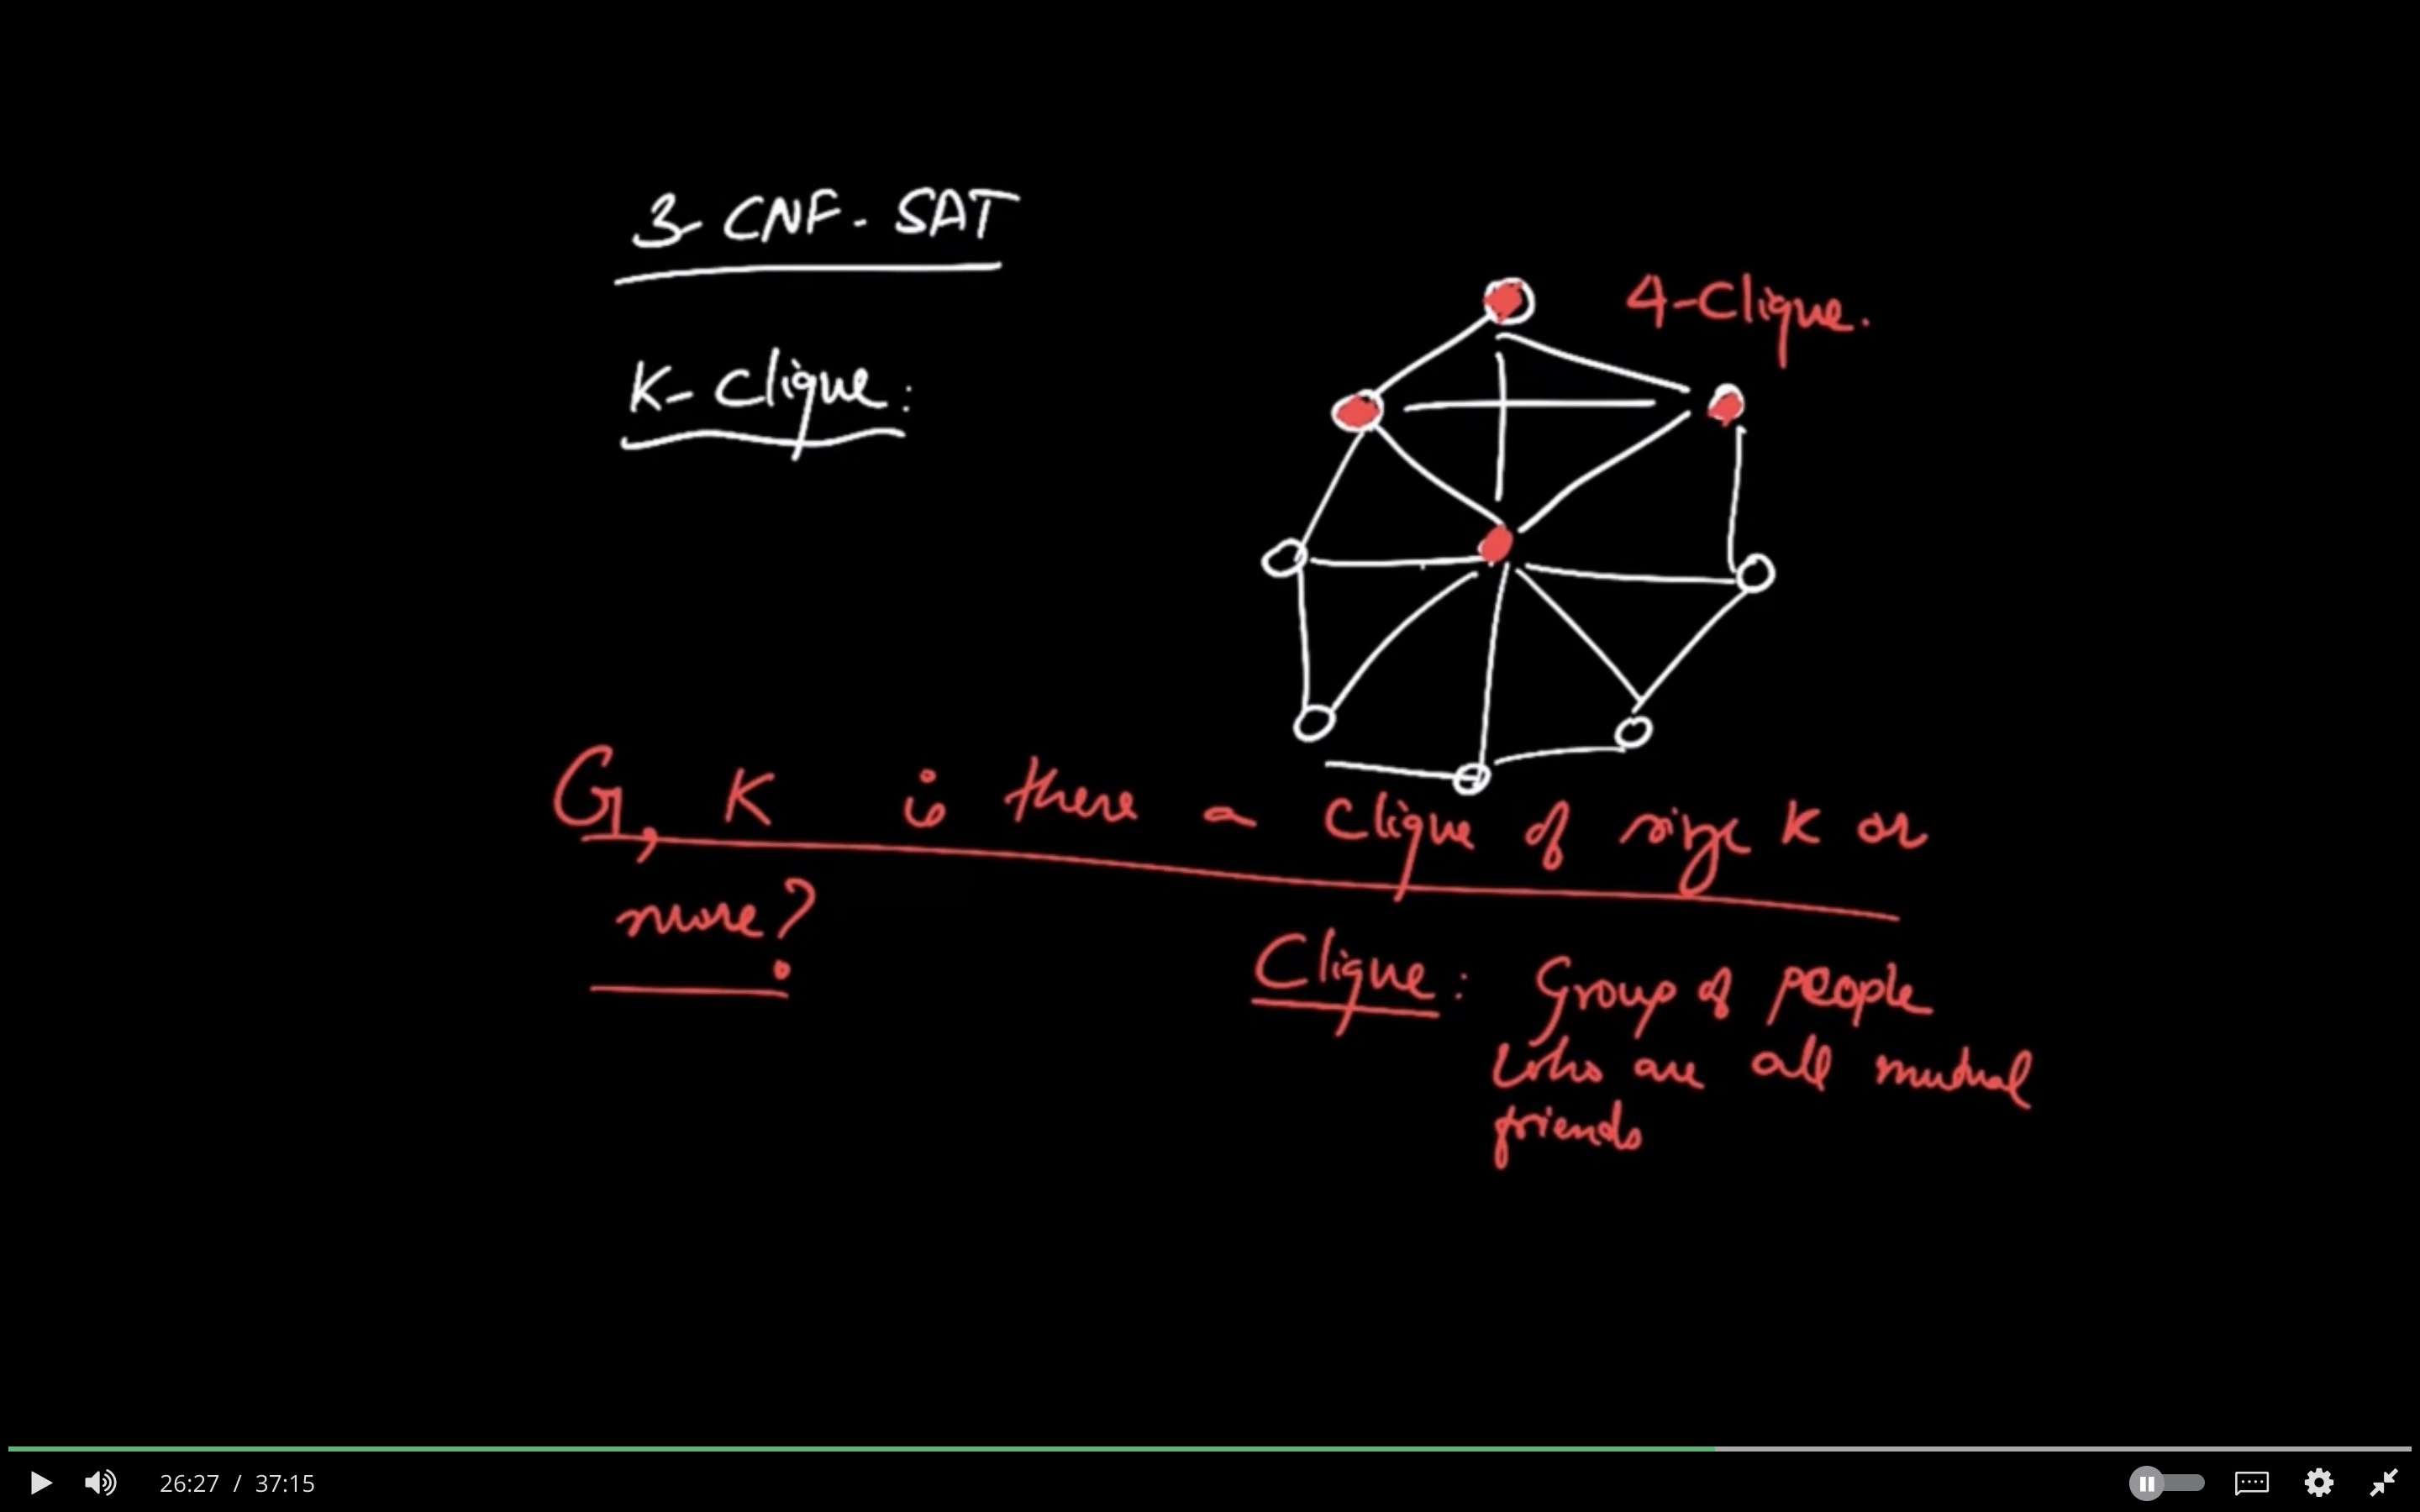 3-CNF-SAT
4-Clique.
K-Clique:
G, K is there a Clique of size K or
more?
Clique: Group of people
who are all mutual
friends
26:27 / 37:15